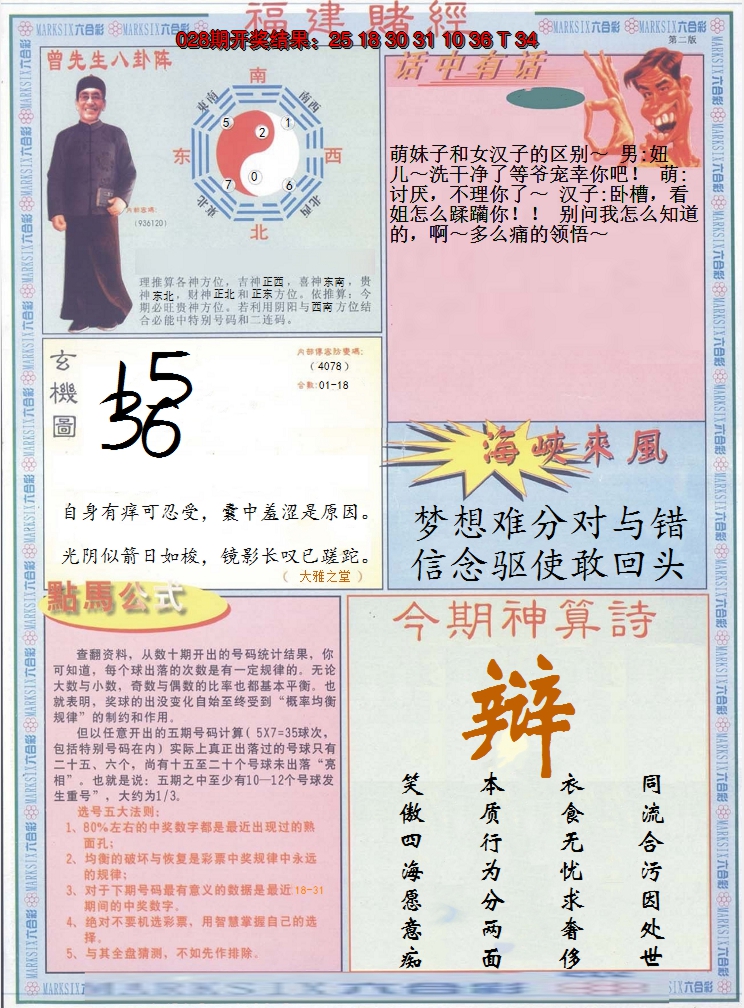 福建賭經
028期开奖结果：25 18 30 31 10 36 T 34
第二版
曾先生八卦阵
南
东南
西南
5
2
1
东
西
7
0
6
东北
西北
北
内部密码:
(936120)
理推算各神方位，吉神正西，喜神东南，贵
神东北，财神正北和正东方位。依推算：今
期必旺贵神方位。若利用阴阳与西南方位结
合必能中特别号码和二连码。
话中有话
萌妹子和女汉子的区别～ 男:妞
儿～洗干净了等爷宠幸你吧! 萌:
讨厌，不理你了～ 汉子:卧槽，看
姐怎么蹂躏你!! 别问我怎么知道
的，啊～多么痛的领悟～
玄機圖
15
36
(4078)
合数:01-18
自身有痒可忍受，囊中羞涩是原因。
光阴似箭日如梭，镜影长叹已蹉跎。
( 大雅之堂 )
海峡來風
梦想难分对与错
信念驱使敢回头
點馬公式
查翻资料，从数十期开出的号码统计结果，你
可知道，每个球出落的次数是有一定规律的。无论
大数与小数，奇数与偶数的比率也都基本平衡。也
就表明，奖球的出没变化自始至终受到“概率均衡
规律”的制约和作用。
但以任意开出的五期号码计算( 5X7=35球次，
包括特别号码在内) 实际上真正出落过的号球只有
二十五、六个，尚有十五至二十个号球未出落“亮
相”。也就是说：五期之中至少有10—12个号球发
生重号”，大约为1/3。
选号五大法则：
1、80%左右的中奖数字都是最近出现过的熟
面孔；
2、均衡的破坏与恢复是彩票中奖规律中永远
的规律；
3、对于下期号码最有意义的数据是最近18-31
期间的中奖数字。
4、绝对不要机选彩票，用智慧掌握自己的选
择。
5、与其全盘猜测，不如先作排除。
今期神算詩
辩
同流合污因处世
衣食无忧求奢侈
本质行为分两面
笑傲四海愿意痴
MARKSIX六合彩